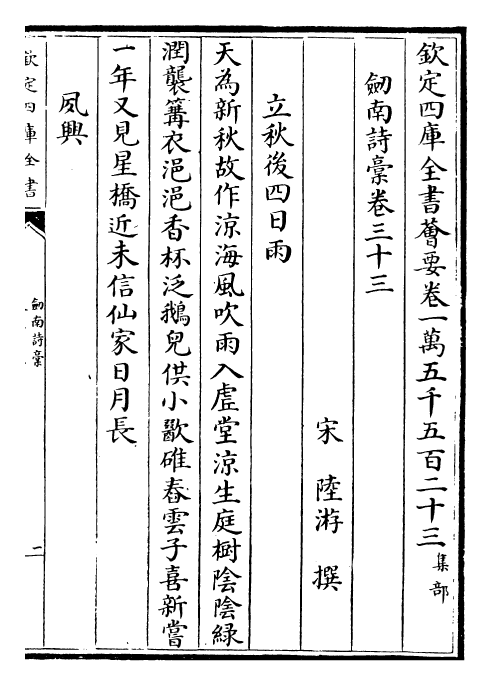 欽定四庫全書薈要卷一萬五千五百二十三集部
劒南詩槀卷三十三
宋陸游撰
立秋後四日雨
天為新秋故作涼海風吹雨入虛堂涼生庭樹陰陰緑
潤襲篝衣浥浥香杯泛鵝兒供小歠碓舂雲子喜新嘗
一年又見星橋近未信仙家日月長
夙興
欽定四庫全書
劒南詩槀
二